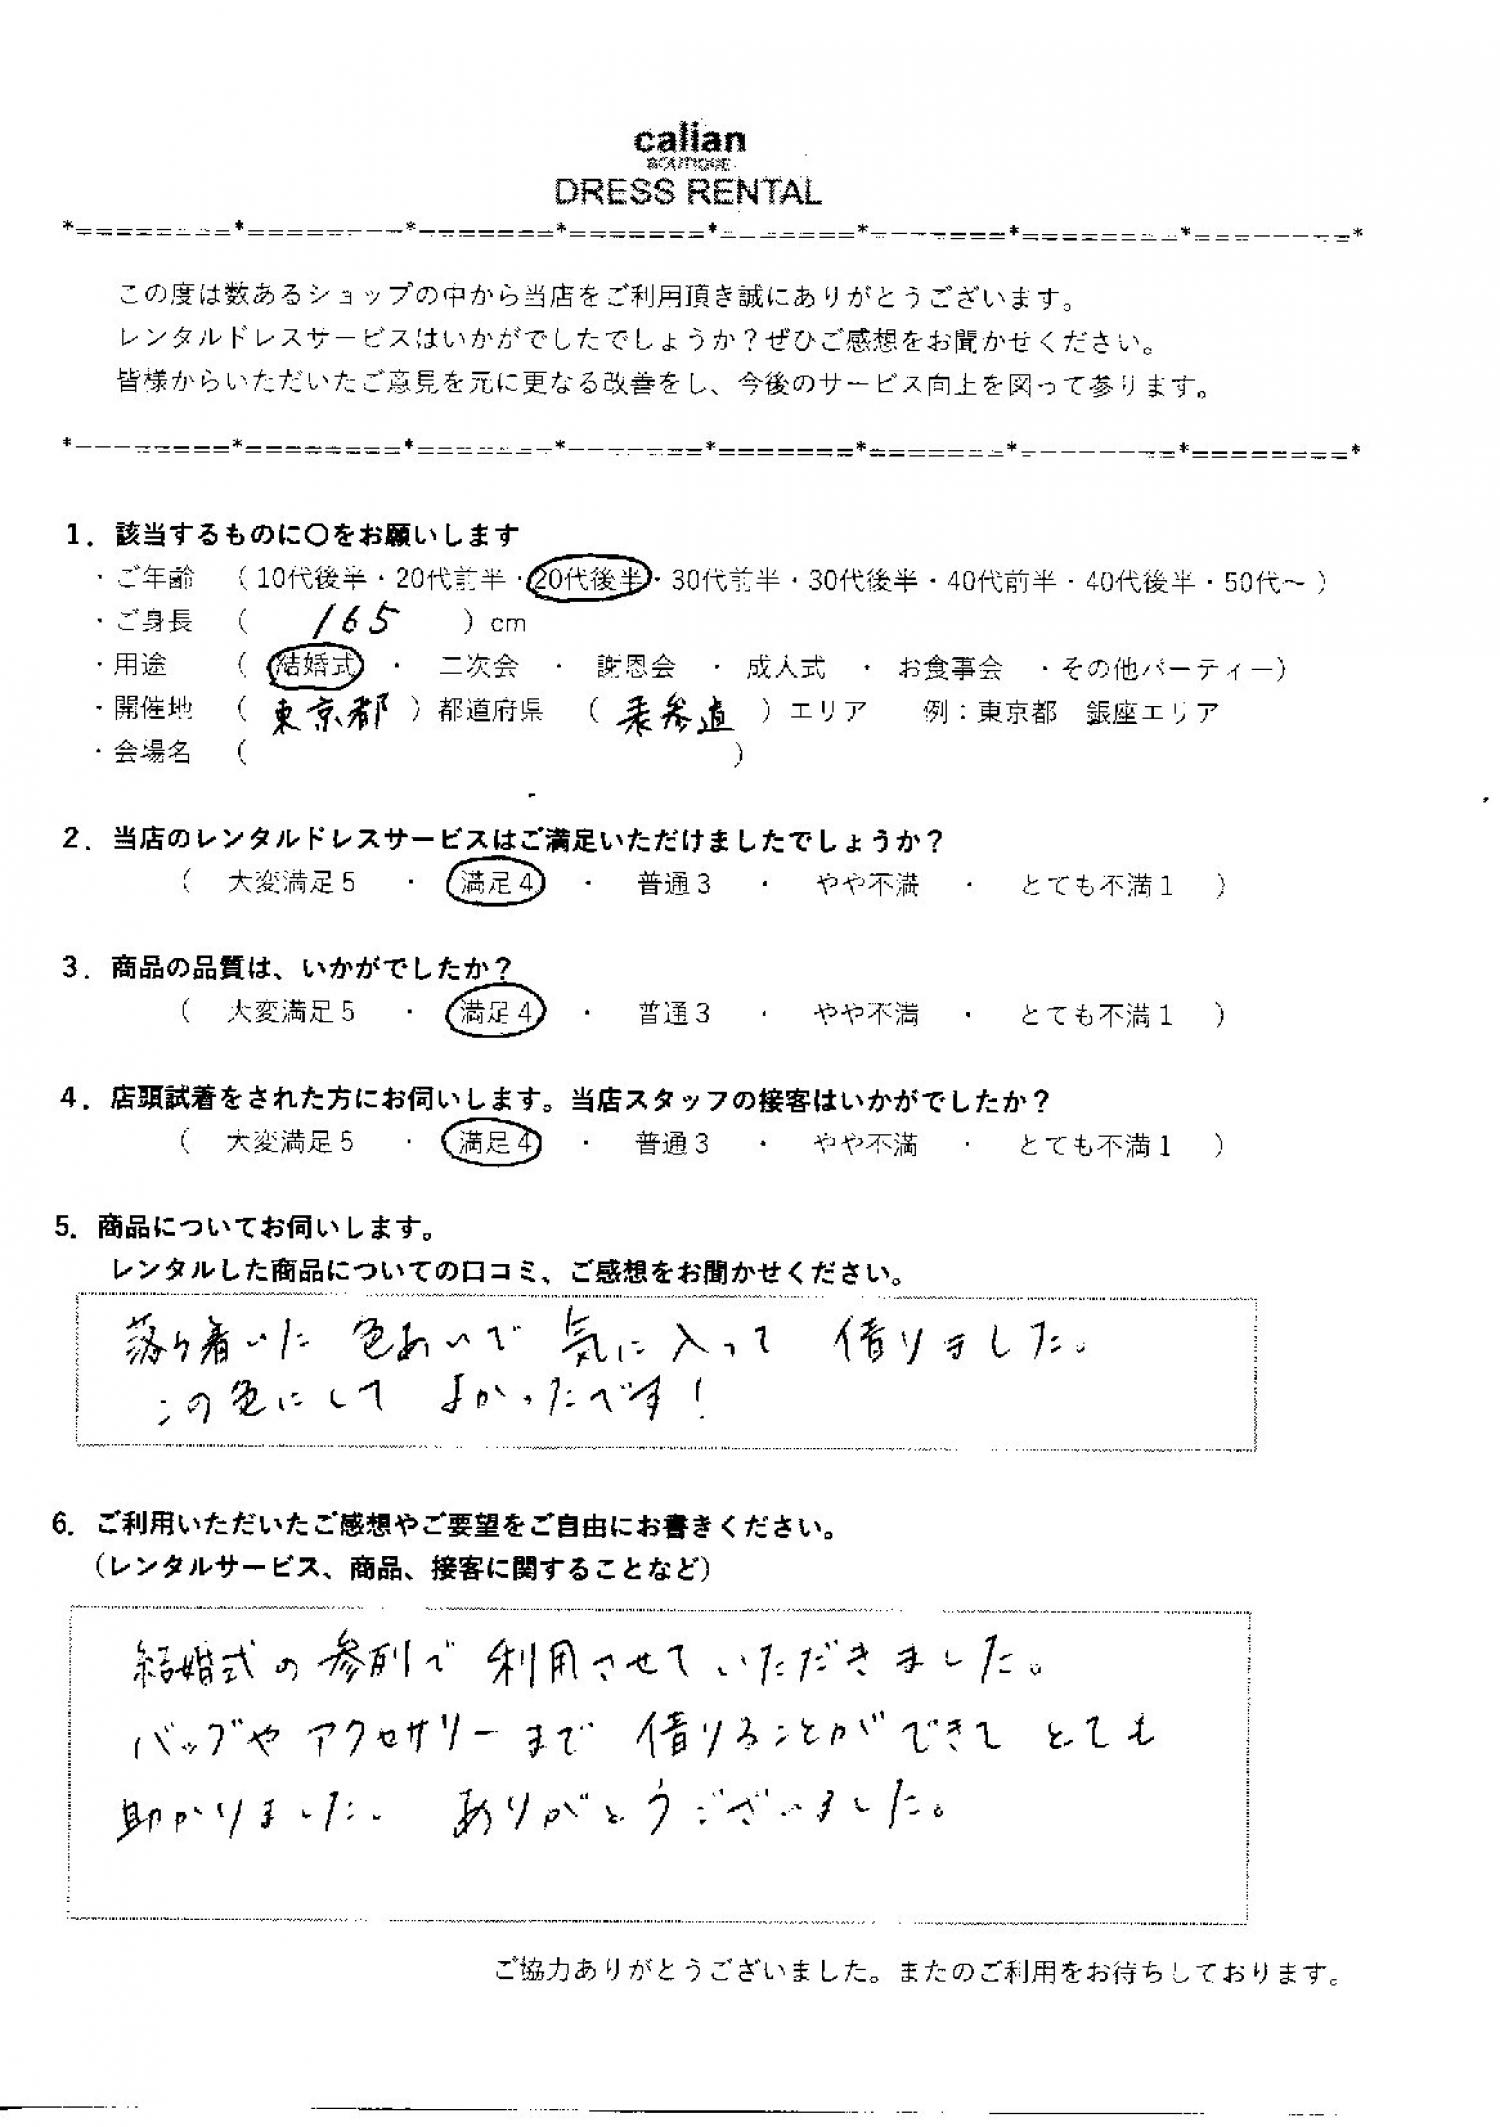 calian
BOUTIQUE
DRESS RENTAL
この度は数あるショップの中から当店をご利用頂き誠にありがとうございます。
レンタルドレスサービスはいかがでしたでしょうか？ぜひご感想をお聞かせください。
皆様からいただいたご意見を元に更なる改善をし、今後のサービス向上を図って参ります。
1．該当するものに〇をお願いします
・ご年齢 （ 10代後半・20代前半・20代後半・30代前半・30代後半・40代前半・40代後半・50代～ ）
・ご身長 （ 165 ）cm
・用途 （ 結婚式 ・ 二次会 ・ 謝恩会 ・ 成人式 ・ お食事会 ・その他パーティー）
・開催地 （ 東京都 ）都道府県 （ 表参道 ）エリア 例：東京都 銀座エリア
・会場名 （ ）
2．当店のレンタルドレスサービスはご満足いただけましたでしょうか？
（ 大変満足5 ・ 満足4 ・ 普通3 ・ やや不満 ・ とても不満1 ）
3．商品の品質は、いかがでしたか？
（ 大変満足5 ・ 満足4 ・ 普通3 ・ やや不満 ・ とても不満1 ）
4．店頭試着をされた方にお伺いします。当店スタッフの接客はいかがでしたか？
（ 大変満足5 ・ 満足4 ・ 普通3 ・ やや不満 ・ とても不満1 ）
5．商品についてお伺いします。
レンタルした商品についての口コミ、ご感想をお聞かせください。
落ち着いた 色あいで 気に入って 借りました。
この色にして よかったです！
6．ご利用いただいたご感想やご要望をご自由にお書きください。
（レンタルサービス、商品、接客に関することなど）
結婚式の参列で 利用させていただきました。
バッグやアクセサリーまで 借りることができて とても
助かりました。 ありがとうございました。
ご協力ありがとうございました。またのご利用をお待ちしております。